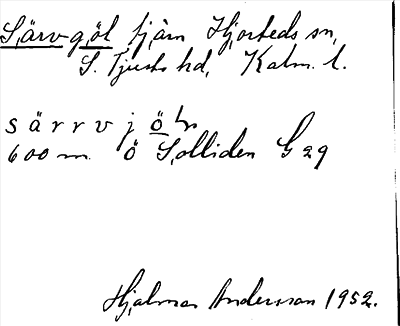 Särvgöl tjärn Hjorteds sn,
S. Tjusts hd, Kalm. l.
särrvjöln
600 m. Ö Solliden G 29
Hjalmar Andersson 1952.